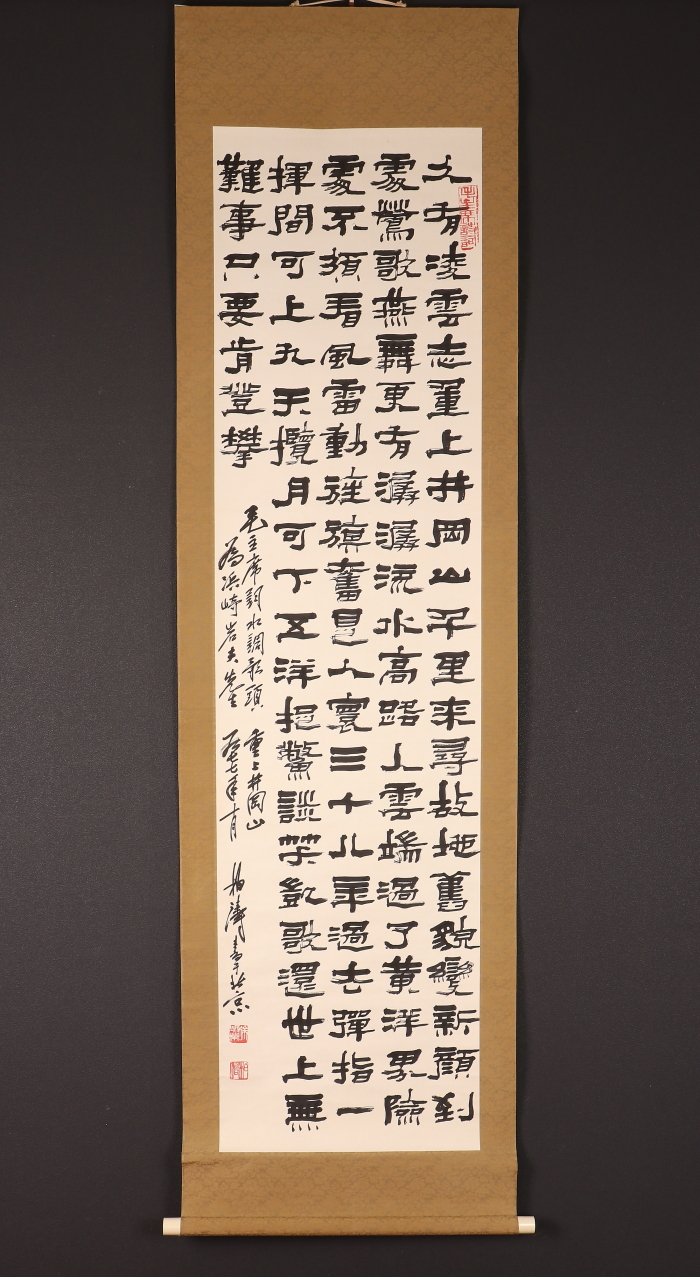 久有凌雲志重上井岡山千里来尋故地舊貌變新顔到
處鶯歌燕舞更有潺潺流水高路入雲端過了黄洋界險
處不須看風雷動旌旗奮是人寰三十八年過去彈指一
揮間可上九天攬月可下五洋捉鱉談笑凱歌還世上無
難事只要肯登攀
毛主席詞水調歌頭 重上井岡山
為浜崎岩夫先生 七年十月 柏濤書于北京